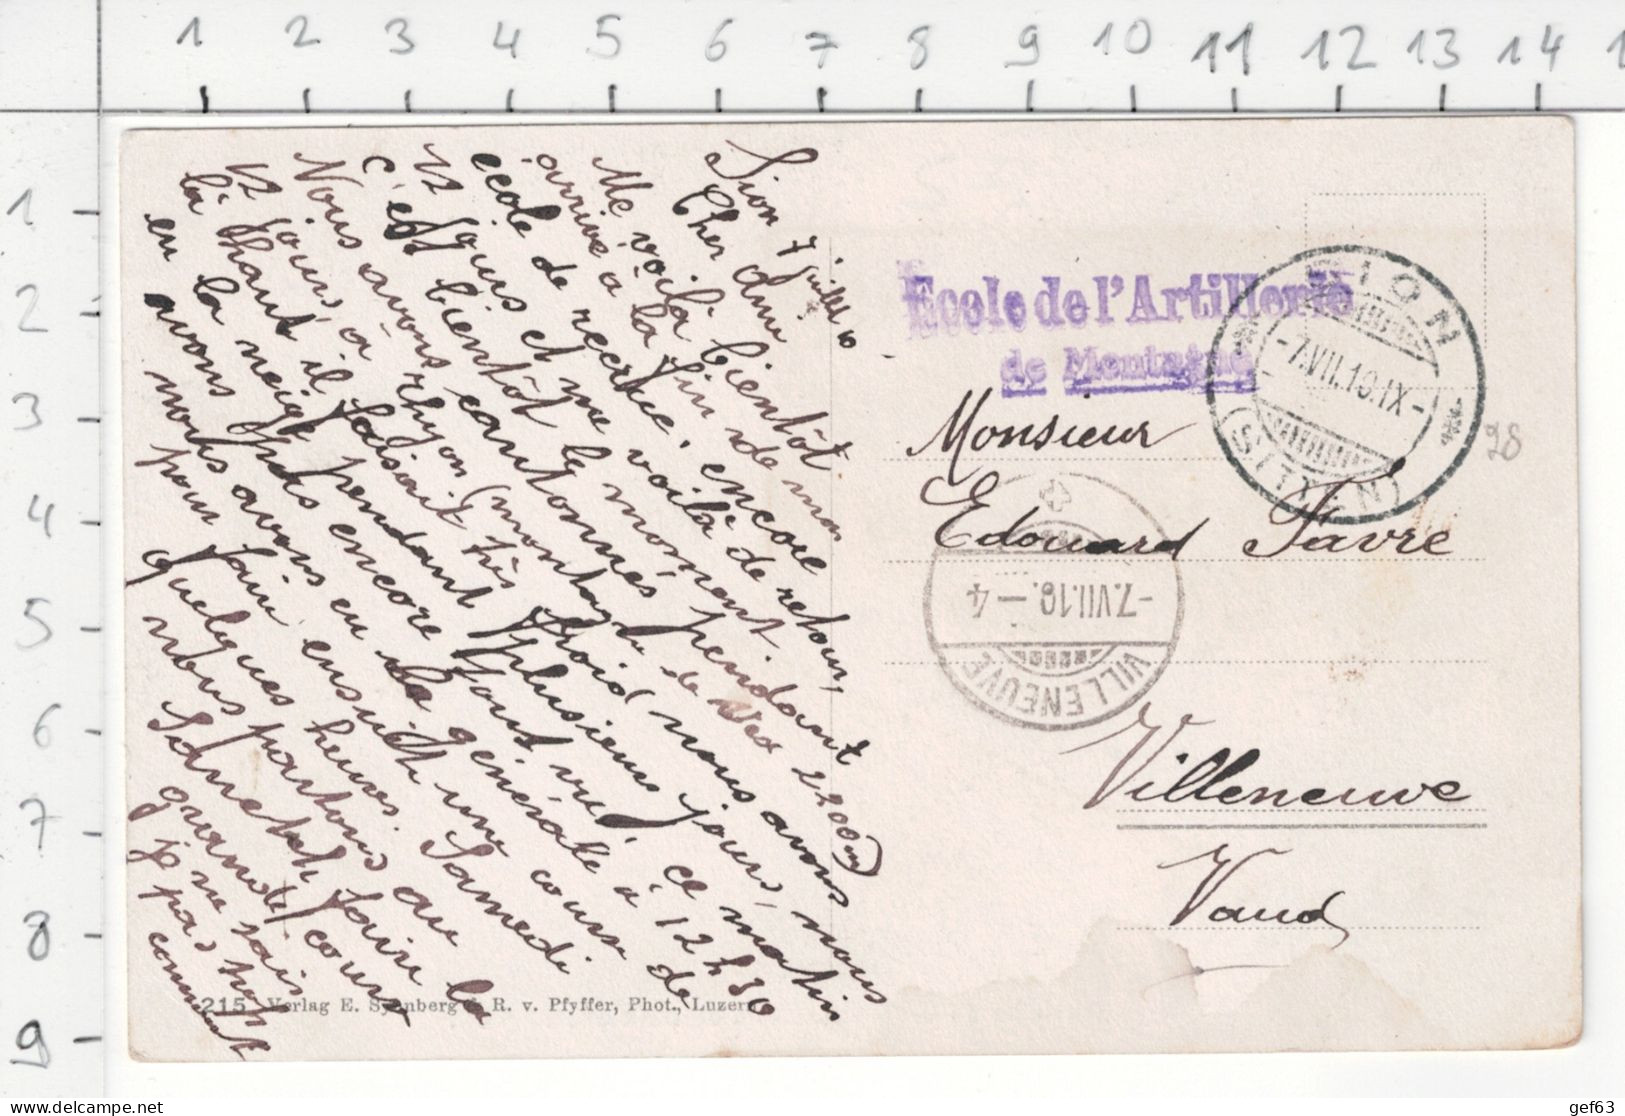 1 2 3 4 5 6 7 8 9 10 11 12 13 14 1
1
2
3
4
5
6
7
8
9
Sion 7 juillet 10
Cher ami
Me voilà bientôt
arrivé à la fin de mon
école de recrue, encore
12 jours et me voilà de retour,
c'est bientôt le moment
Nous avons cantonnés pendant
12 jours, à Thyon (montagne de Vex 2200m)
là haut il faisait très froid, nous avons
en la neige pendant plusieurs jours, nous
avons pas encore tout vu, ce matin
nous avons eu la générale à 12 h 30
pour faire ensuite une course de
quelques heures. Samedi
nous partons au
Sanetsch faire la
grande course
je ne sais
pas trop
comment
Ecole de l'Artillerie
de Montagne
SION
-7.VII.10.IX-
(SITTEN)
98
Monsieur
Edouard Favre
4
-7.VII.10.-4
VILLENEUVE
Villeneuve
Vaud
215 Verlag E. Synnberg & R. v. Pfyffer, Phot., Luzern
gef63